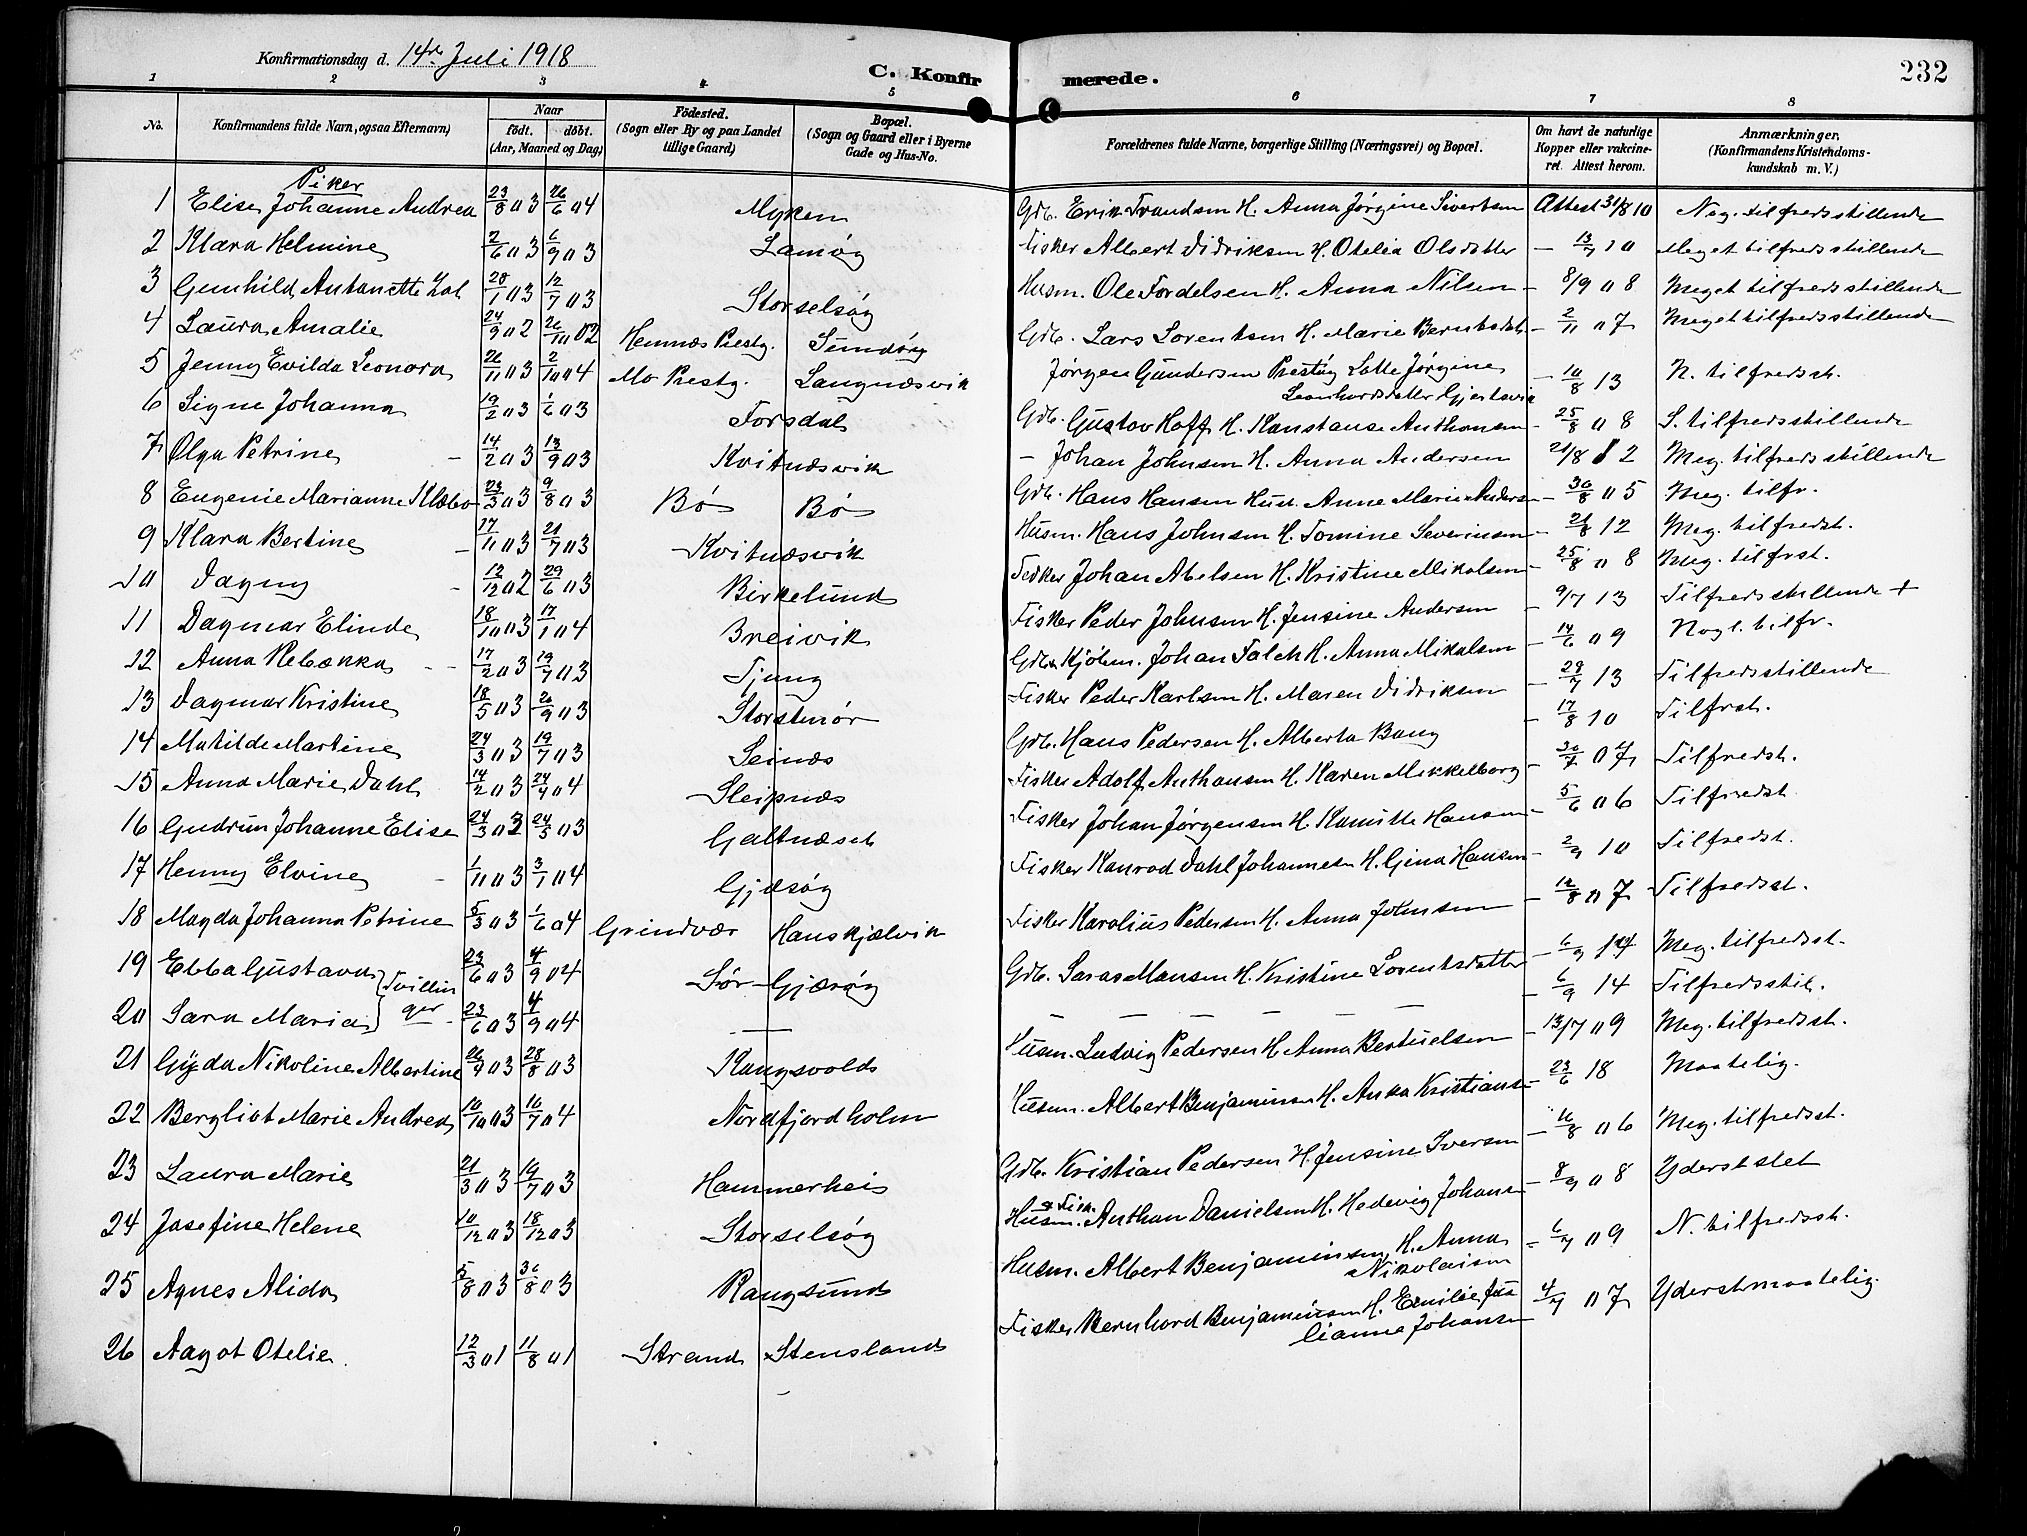 Konfirmationsdag d. 14de Juli 1918
C. Konfirmerede.
232
1 2 3 4 5 6 7 8
No. Konfirmandens fulde Navn, ogsaa Efternavn) Naar födt. döbt. (Aar, Maaned og Dag) Födested. (Sogn eller By og paa Landet tillige Gaard) Bopæl. (Sogn og Gaard eller i Byerne Gade og Hus-No. Forældrenes fulde Navne, borgerlige Stilling (Næringsvei) og Bopæl. Om havt de naturlige Kopper eller vakcineret. Attest herom. Anmærkninger, (Konfirmandens Kristendomskundskab m. V.)
Piker
1 Elise Johanne Andrea 23/8 03 26/6 04 Myken Gdb. Erik Trondsen H. Anna Jørgine Sivertsen Attest 31/8 10 Meg. tilfredsstillende
2 Klara Helmine 2/6 03 6/9 03 Lamøy Fisker Albert Didriksen H. Otelia Olsdatter – 13/7 10 Meget tilfredsstillende
3 Gunhild Antonette 28/1 03 12/7 03 Storselsøy Husm. Ole Fordelsen H. Anna Nilsen – 8/9 08 Meget tilfredsstillende
4 Laura Amalie 24/9 02 26/10 02 Hemnæs Prestg. Sundøy Gdb. Lars Lorentsen H. Marie Berntsdat – 2/11 07 Meget tilfredsstillende
5 Jenny Evilda Leonora 26/11 03 2/10 04 Mo Prestg. Langnæsvik Jørgen Gundersen Lotte Jørgine Leonhardsdatter Gjertsvik – 10/8 13 N. tilfredsst.
6 Signe Johanna 19/2 03 1/6 03 Forsdal Gdb. Gustav Hoff H. Konstanse Anthonsen – 25/8 08 S. tilfredsstillende
7 Olga Petrine – 14/2 03 13/9 03 Kvitnæsvik – Johan Johnsen H. Anna Andersen 21/8 12 Meg. tilfredsstillende
8 Eugenie Marianne Klæbo 23/3 03 9/8 03 Bø Bø Gdb. Hans Hansen Hust. Anne Marie Anders – 30/8 05 Meg. tilfr.
9 Klara Bertine – 17/11 03 21/7 03 Kvitnæsvik Husm. Hans Johnsen H. Tomine Severinsen – 21/8 12 Meg. tilfredst.
10 Dagny – 12/12 02 29/6 03 Birkelund Fisker Johan Abelsen H. Kristine Mikalsen – 25/8 08 Meg. tilfrst.
11 Dagmar Elinde 18/10 03 17/1 04 Breivik Fisker Peder Johnsen H. Jensine Andersen – 9/7 13 Tilfredsstillende +
12 Anna Rebekka – – 17/2 03 19/7 03 Tjung Gdb. Kjøbm. Johan Falch H. Anna Mikalsen – 14/6 09 Nogl. tilfr.
13 Dagmar Kristine 18/5 03 20/9 03 Storstenør Fisker Peder Karlsen H. Maren Didriksen – 28/7 13 Tilfredsstillende
14 Matilde Martine 24/3 03 19/7 03 Seinæs Gdb. Hans Pedersen H. Alberta Bang – 17/8 10 Tilfrst.
15 Anna Marie Dahl 14/2 03 24/4 04 Sleipnæs Fisker Adolf Anthonsen H. Karen Mikkelborg – 30/7 07 Tilfredst.
16 Gudrun Johanne Elise 24/3 03 24/5 03 Galtneset Fisker Johan Jørgensen H. Kamitte Hansen – 5/6 06 Tilfredst.
17 Henny Elvine – 1/11 03 3/1 04 Gjæsøy Fisker Konrad Dahl Johannesen H. Gina Hansen – 2/9 10 Tilfredst.
18 Magda Johanna Petrine 5/3 03 1/6 04 Grindvær Hanskjælvik Fisker Karolius Pedersen H. Anna Johnsen – 12/8 07 Tilfredsst.
19 Ebba Gustava } Tvillinger 23/6 03 4/9 04 Sør-Gjærøy Gdb. Saras Monsen H. Kristine Lorentsdatter – 6/9 14 Meg. tilfredsst.
20 Sara Maria } 23/6 03 4/9 04 — – – – – – – 6/9 14 Tilfredsstil.
21 Gyda Nikoline Albertine 26/4 03 28/8 03 Kongsvold Husm. Ludvig Pedersen H. Anna Bertuelsen – 13/7 09 Meg. tilfredsst.
22 Bergliot Marie Andrea 10/10 03 10/7 04 Nordfjordholm Husm. Albert Benjaminsen H. Anna Kristians – 23/6 18 Maatelig.
23 Laura Marie 21/3 03 19/7 03 Hammerhei Gdb. Kristian Pedersen H. Jensine Iversen – 16/8 06 Meg. tilfredsst.
24 Josefine Helene 10/12 03 18/12 03 Storselsøy Husm. & Fisk. Anthon Danielsen H. Hedevig Johans – 8/9 08 Yderst slet
25 Agnes Alida 5/8 03 30/8 03 Rangsund Husm. Albert Benjaminsen H. Anna Nikolaisen – 6/7 09 N. tilfredsst.
26 Aagot Otelie 12/3 01 11/8 01 Strand Stensland Fisker Bernhard Benjaminsen H. Emilie Julianne Johansen 4/7 07 Yderst maatelig.